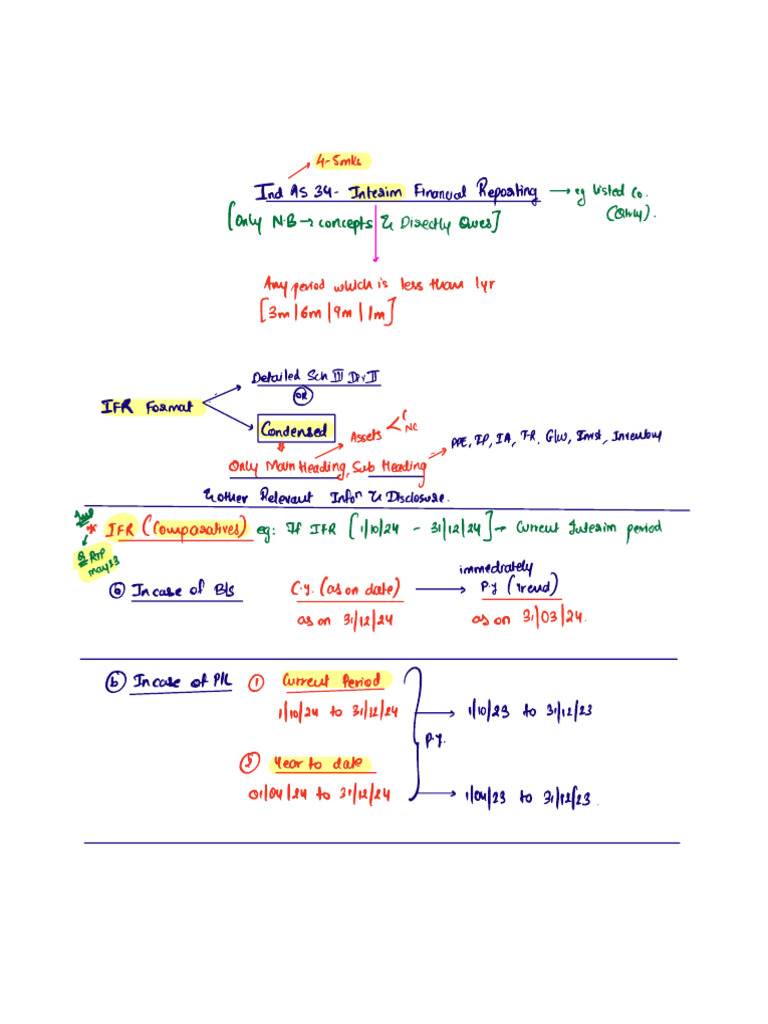 4-5mks
Ind AS 34- Interim Financial Reporting → eg Listed Co. (Qtrly).
[Only N.B → concepts & Directly Ques]
Any period which is less than 1yr
[3m|6m|9m|1m]
Detailed Sch III Div II
OR
IFR Format
Condensed
Assets < C
NC
PPE, IP, IA, TR, G/W, Invst, Inventory
Only Main Heading, Sub Heading
& other Relevant Infoⁿ & Disclosure.
Imp
* IFR (Comparatives) eg: If IFR [1/10/24 - 31/12/24] → Current Interim period
Q RTP
May 23
immediately
(a) In case of B/s C.y. (as on date) → P.y (Yrend)
as on 31/12/24 as on 31/03/24.
(b) In case of P/L (1) Current Period
1/10/24 to 31/12/24 → 1/10/23 to 31/12/23
P.y.
(2) Year to date
01/04/24 to 31/12/24 → 1/04/23 to 31/12/23.